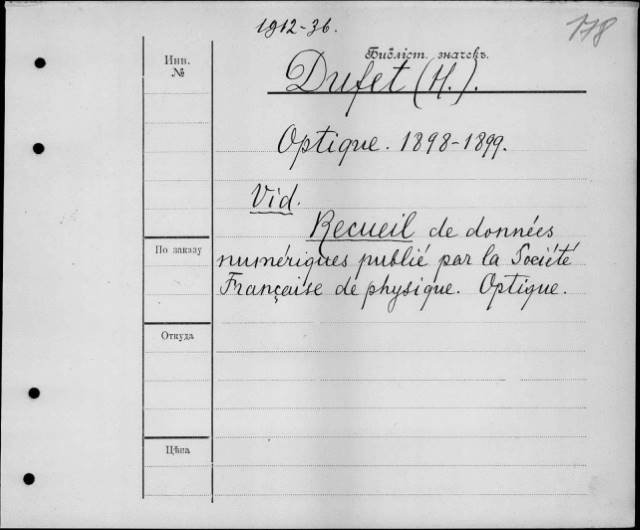 1912-36.
178
Библіст. значекъ.
Инв.
№
Dufet (H.).
Optique. 1898-1899.
Vid.
Recueil de données
По заказу
numériques publié par la Société
Française de physique. Optique.
Откуда
Цѣна